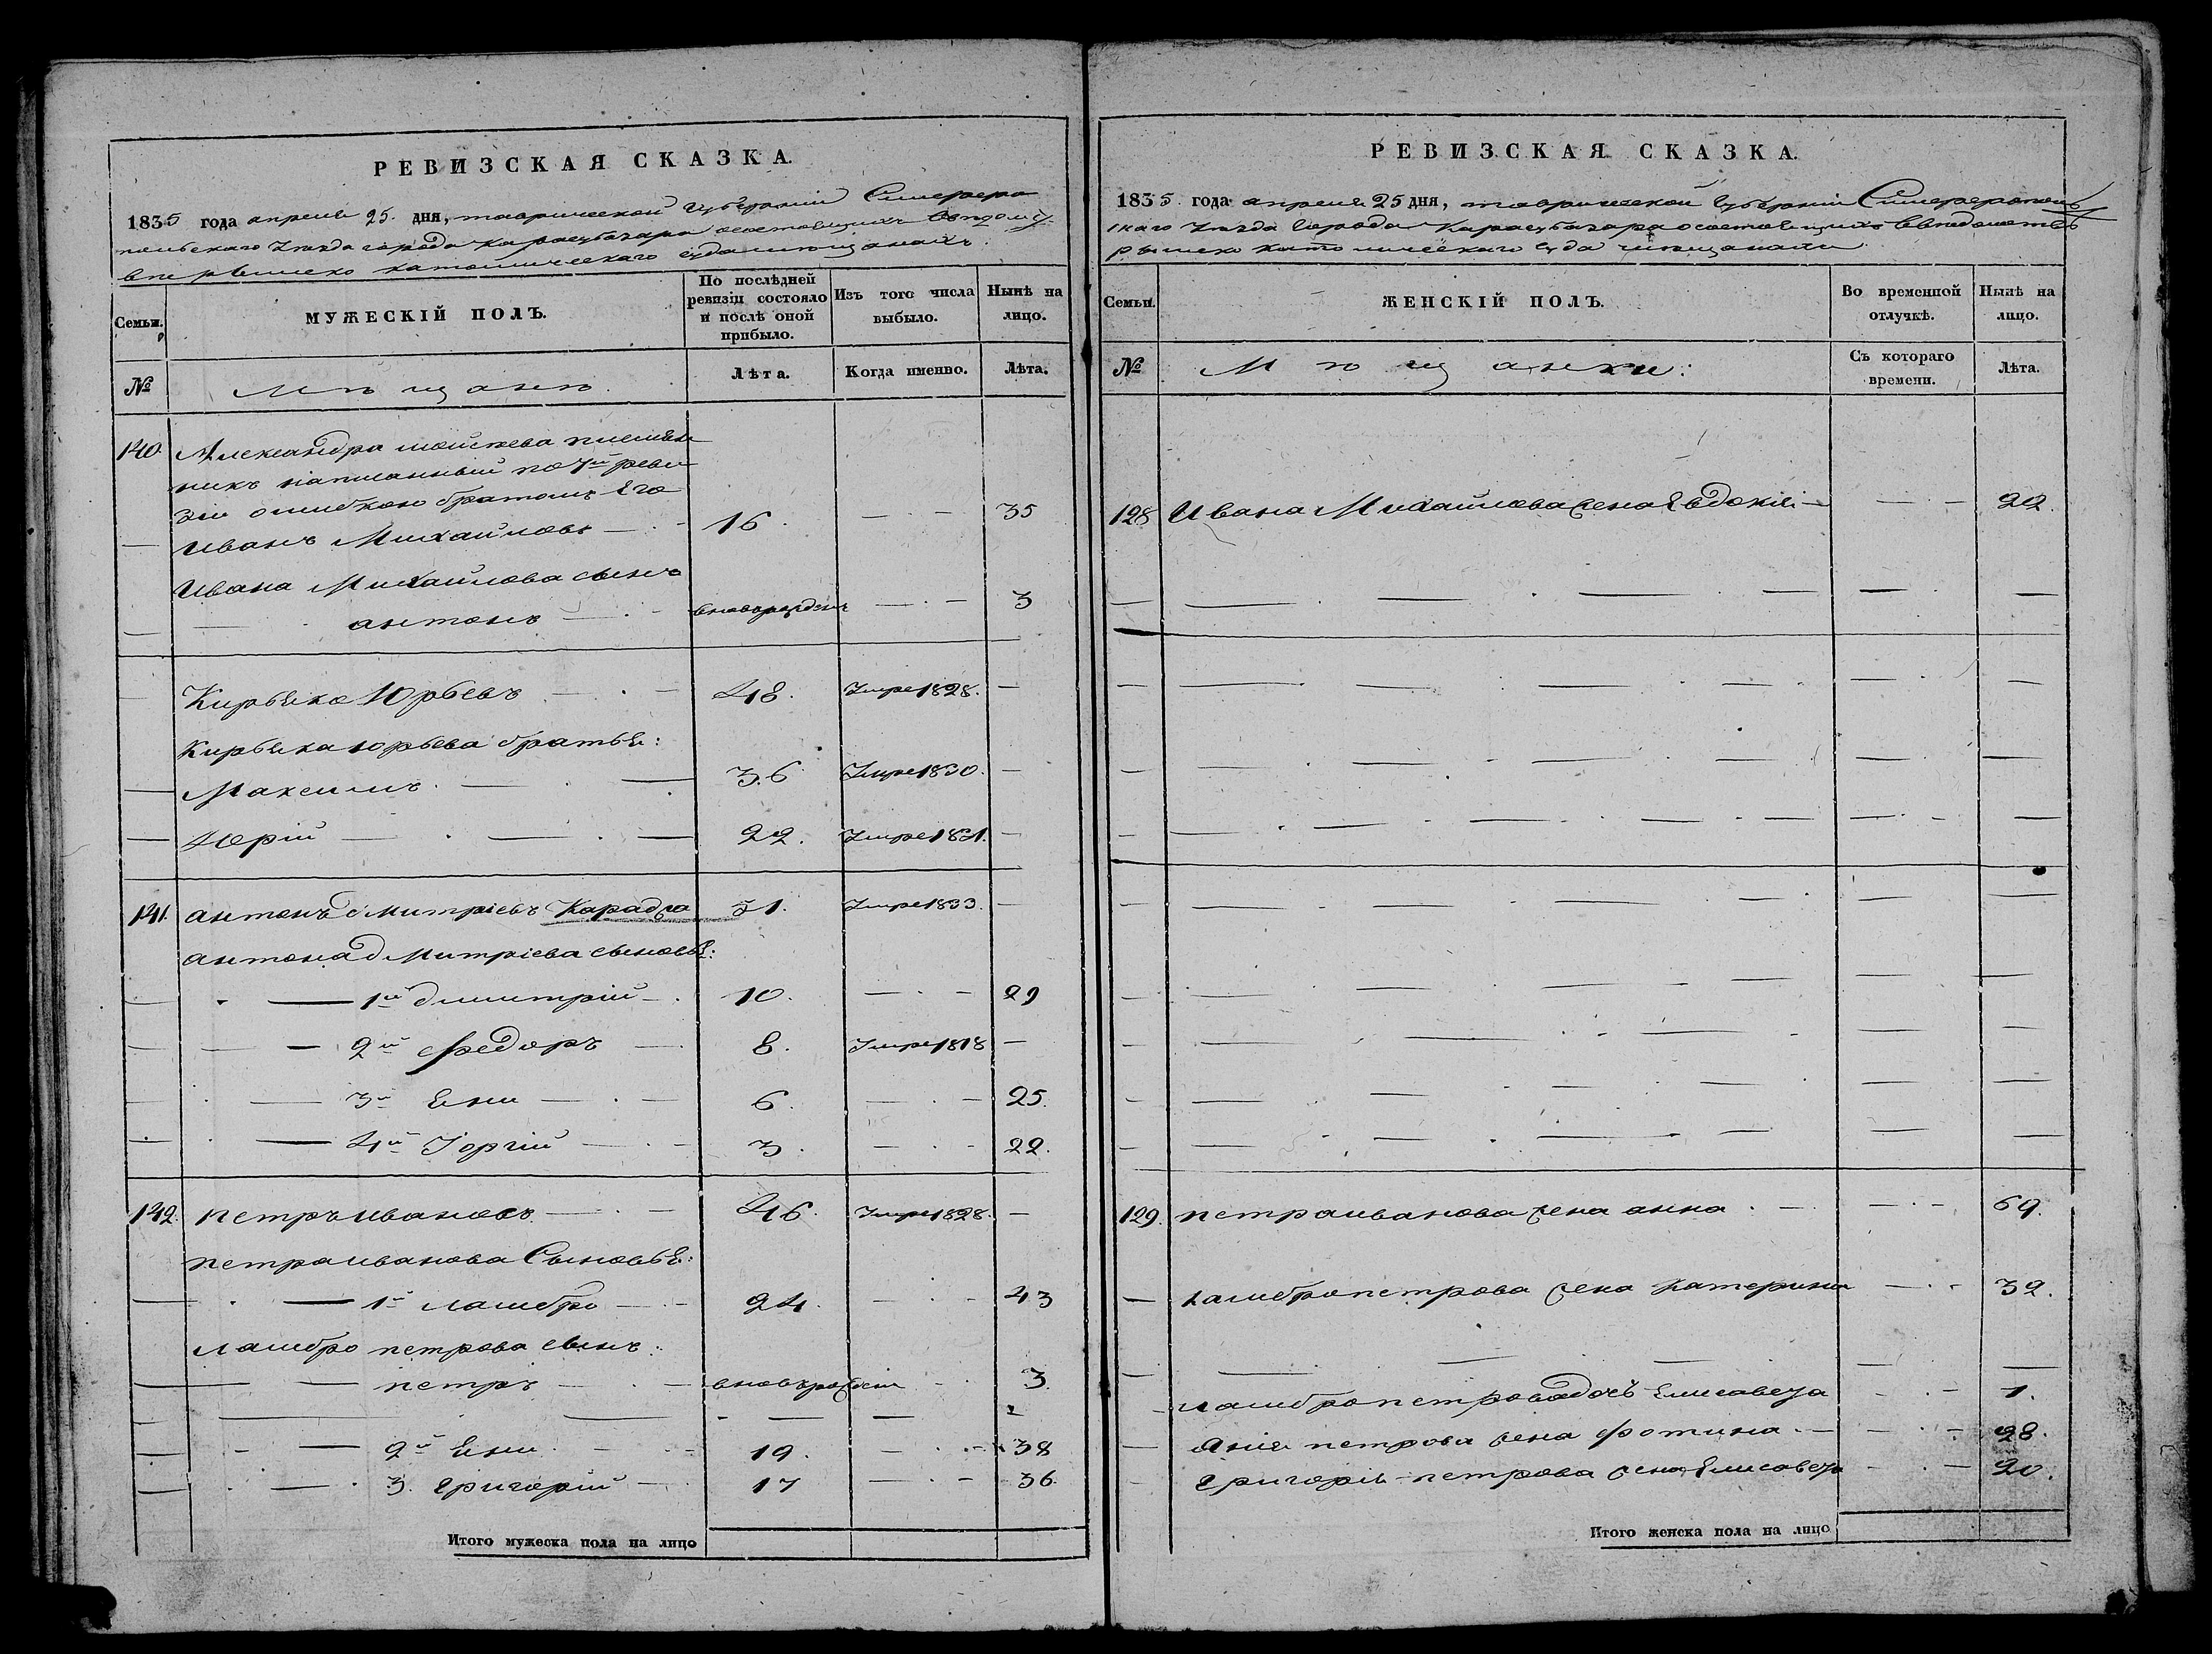 РЕВИЗСКАЯ СКАЗКА.
1835 года апреля 25 дня, таврической губерніи Симферо
польскаго уезда города Карасубазара о состоящихъ ведомст
католическаго суда мещанахъ:
Семьи. МУЖЕСКІЙ ПОЛЪ. По послѣдней ревизіи состояло и послѣ оной прибыло. Изъ того числа выбыло. Нынѣ на лицо.
№ Мѣщане Лѣта. Когда именно. Лѣта.
140. Александра племян
никъ написанный по 7й реви
зіи ошибкою братомъ его
Иванъ Михайловъ 16. 35
Ивана Михайлова сынъ
антонъ вновьрожденъ 3
Кирьяко Юрьевъ 48. Умре 1828.
Кирьяка юрьева братья:
Максимъ 36 Умре 1830.
Юрій 22. Умре 1831.
141. антонъ дмитріевъ Караджа 51. Умре 1833.
антона дмитріева сыновья:
1й дмитрій 10. 29
2й федоръ 8. Умре 1818
3й Яни 6. 25.
4й Іоргій 3. 22.
142. петръ ивановъ 46. Умре 1828.
петра иванова Сыновья:
1й ламбро 24. 43
ламбро петрова сынъ:
петръ вновьрожденъ 3.
2й Яни 19. 38
3. григорій 17 36.
Итого мужеска пола на лицо
РЕВИЗСКАЯ СКАЗКА.
1835 года апреля 25 дня, таврической губерніи Симферополь
скаго уезда города Карасубазара о состоящихъ в ведомстве
католическаго суда мещанами
Семьи. ЖЕНСКІЙ ПОЛЪ. Во временной отлучкѣ. Нынѣ на лицо.
№ Мѣщанки: Съ котораго времени. Лѣта.
128 Ивана Михайлова жена Евдокія 22.
129. петра иванова жена анна 69.
ламбро петрова жена катерина 32.
ламбро петрова дочь Елисавета 1.
Яния петрова жена фотина 28.
Григорія петрова жена Елисавета 20.
Итого женска пола на лицо